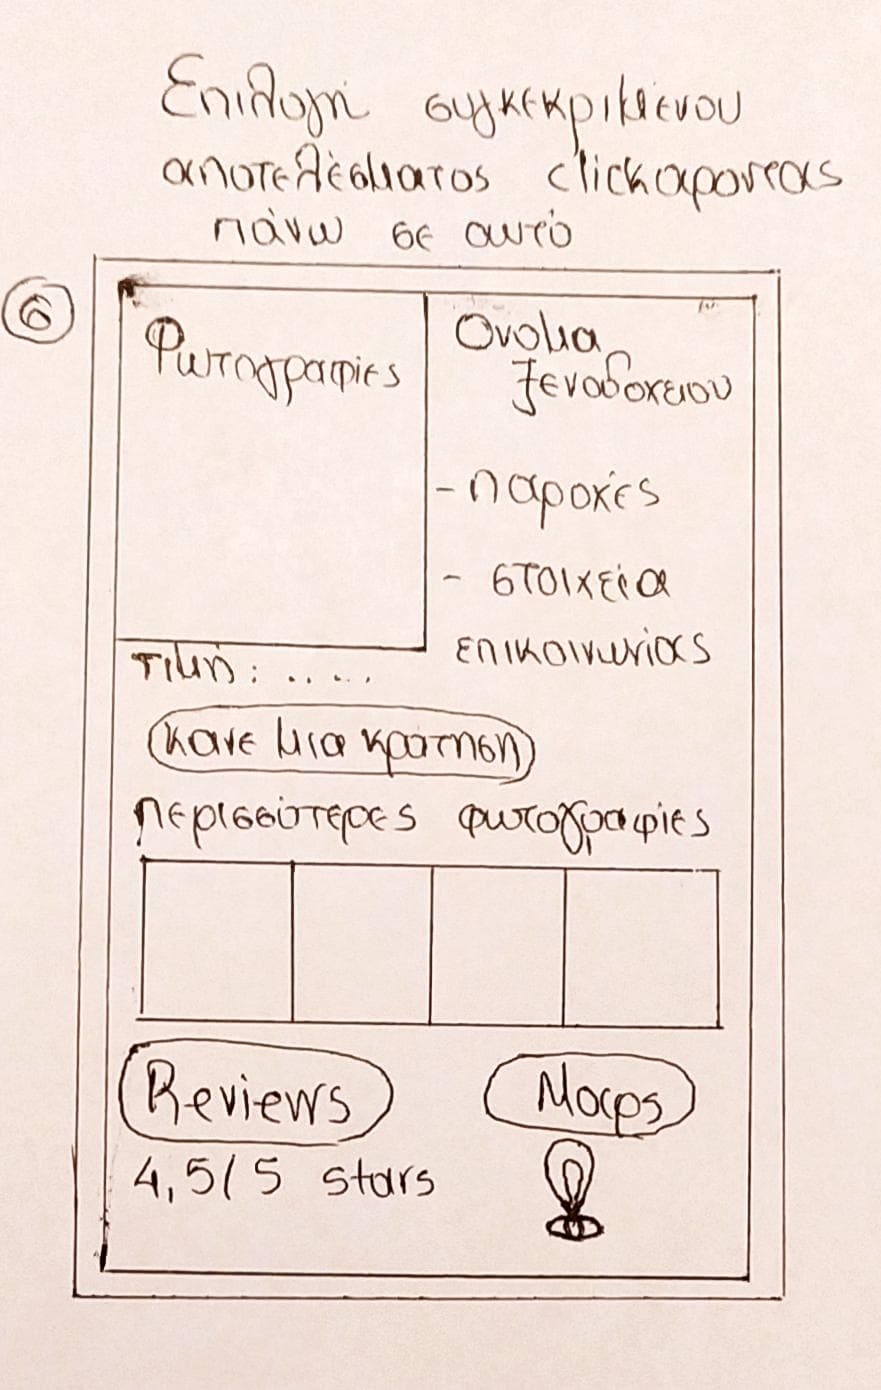 Επιλογή συγκεκριμένου
αποτελέσματος clickαροντας
πάνω σε αυτό
6
Φωτογραφίες
Ονομα
ξενοδοχειου
- παροχές
- στοιχεία
επικοινωνίας
τιμή: .....
κανε μια κράτηση
περισσότερες φωτογραφίες
Reviews
Maps
4,5/5 stars